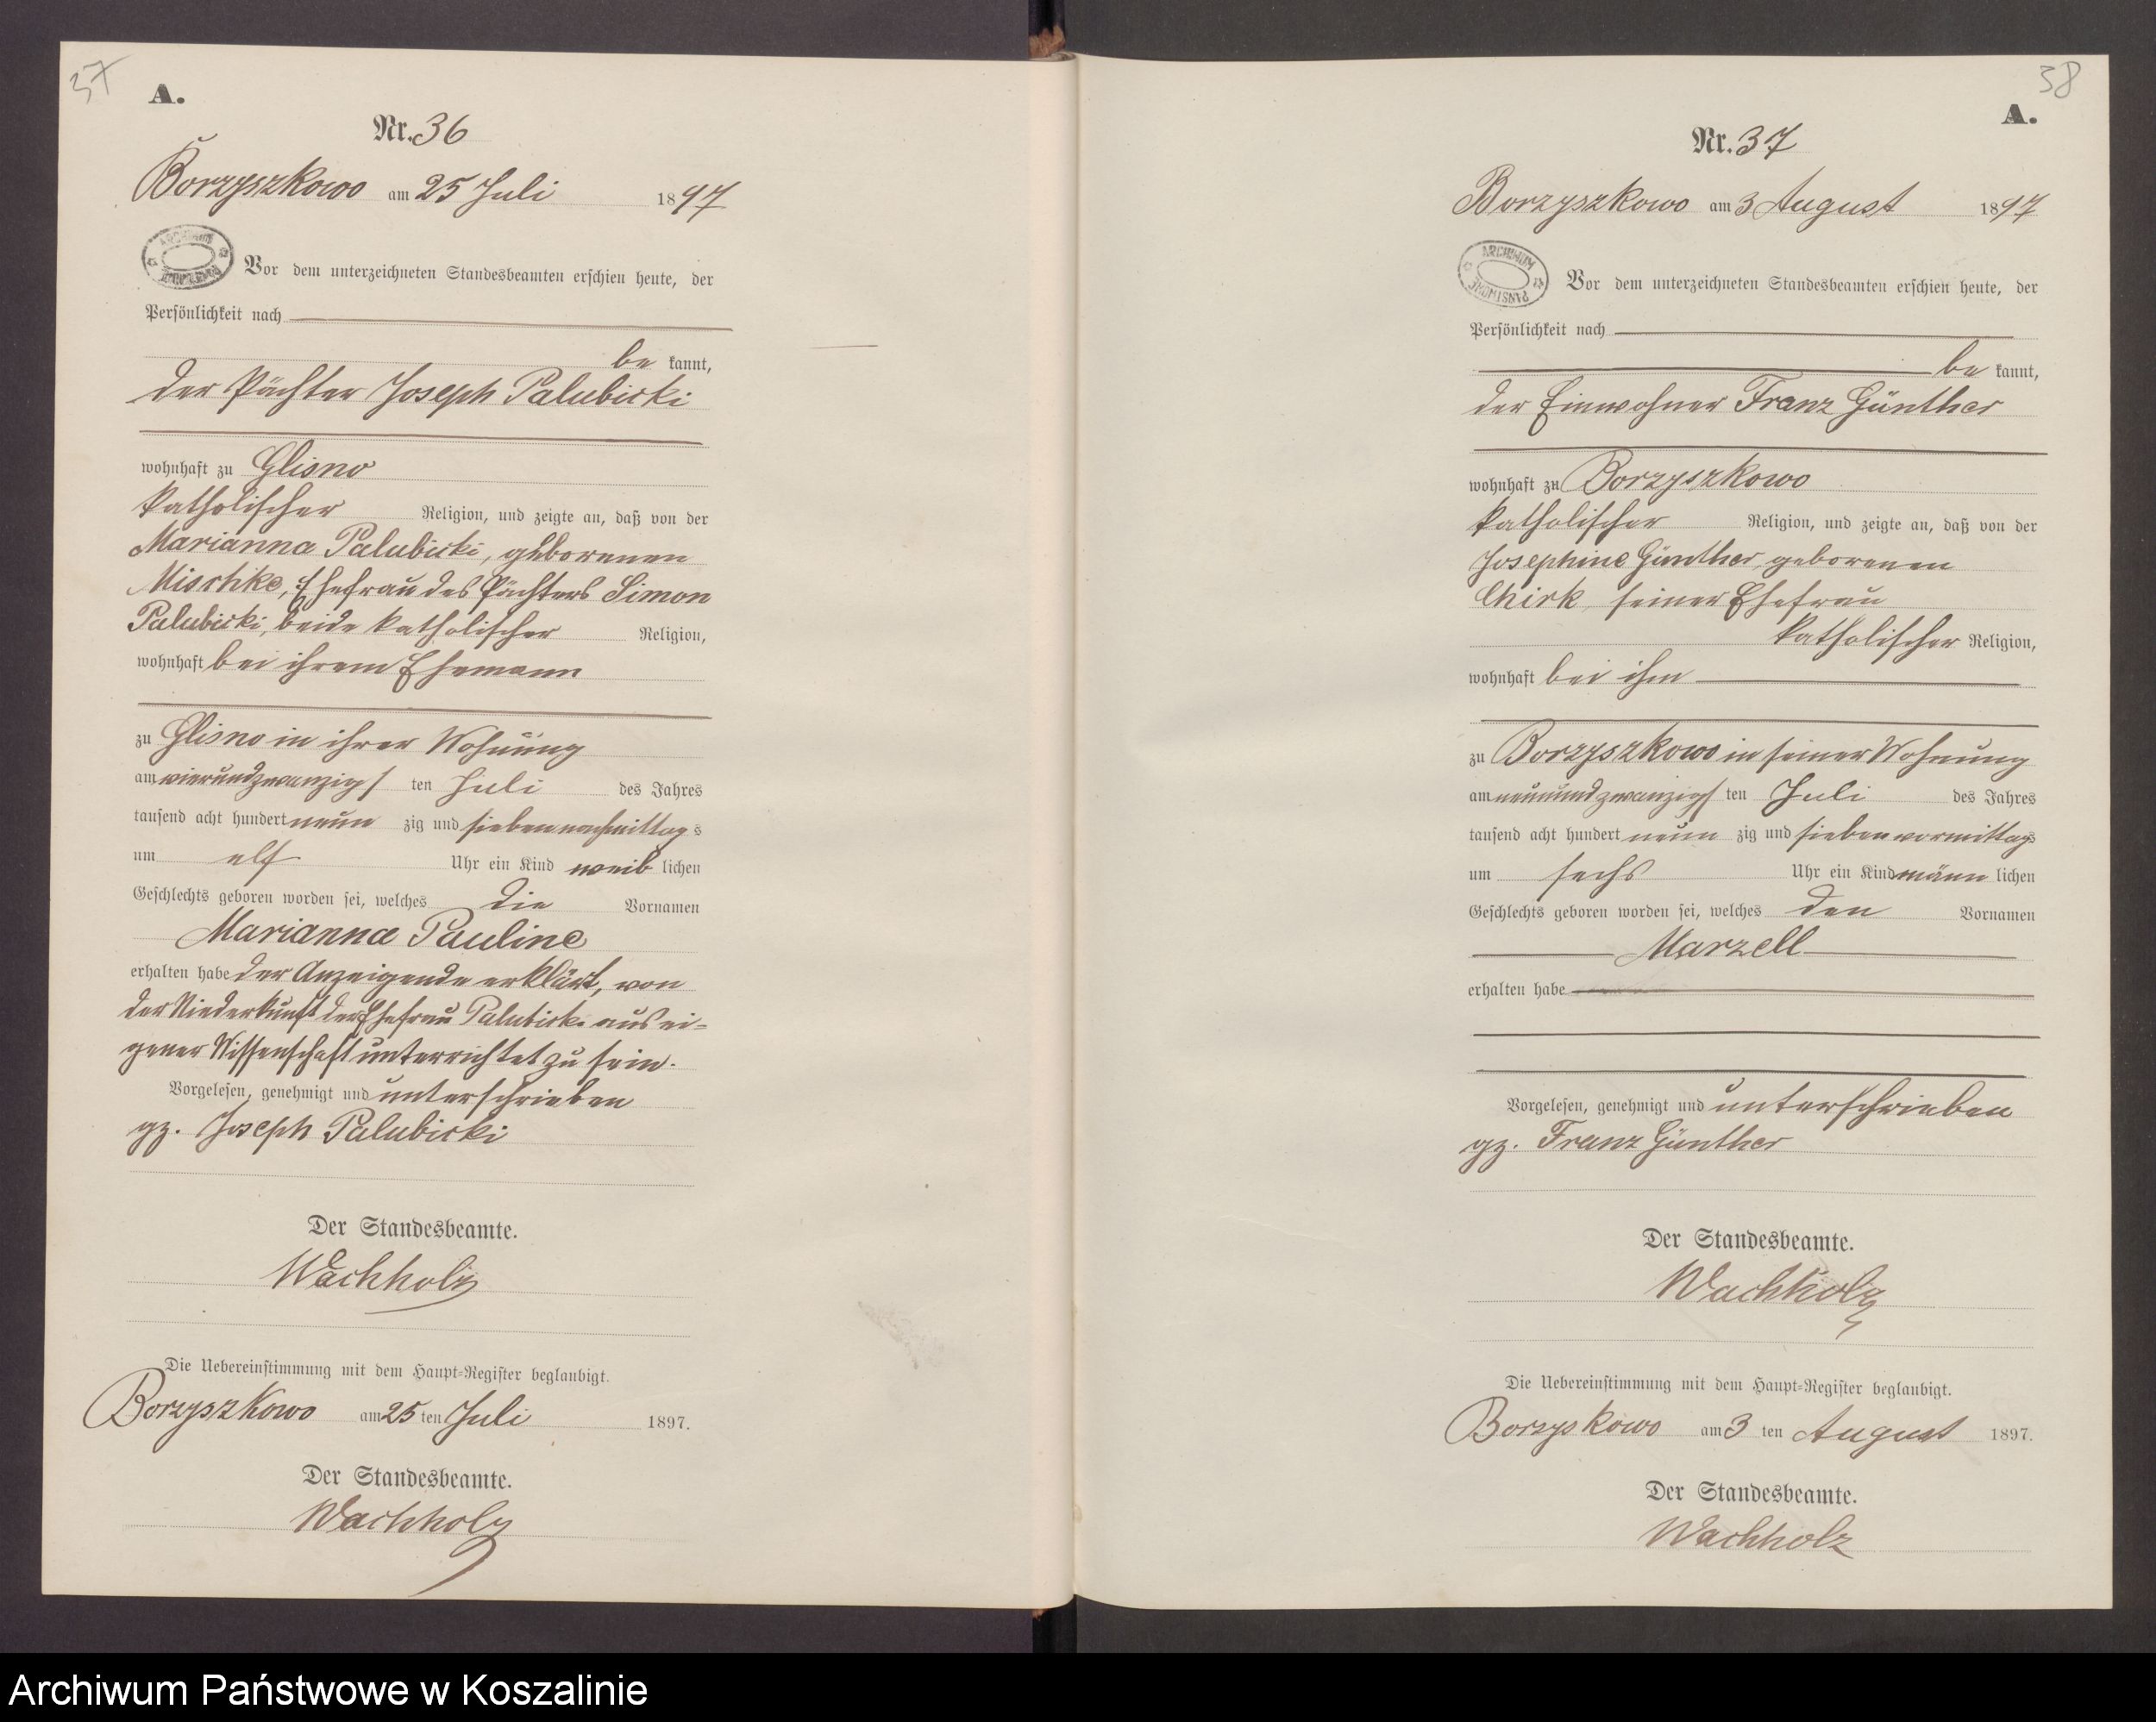 37
A.
Nr. 36
Borzyszkowo am 25 Juli 1897
ARCHIWUM PAŃSTWOWE
Vor dem unterzeichneten Standesbeamten erschien heute, der
Persönlichkeit nach
be kannt,
der Pächter Joseph Palubicki
wohnhaft zu Glisno
katholischer Religion, und zeigte an, daß von der
Marianna Palubicki, geborenen
Mischke, Ehefrau des Pächters Simon
Palubicki, beide katholischer Religion,
wohnhaft bei ihrem Ehemann
zu Glisno in ihrer Wohnung
am vierundzwanzigs ten Juli des Jahres
tausend acht hundert neun zig und sieben nachmittag s
um elf Uhr ein Kind weib lichen
Geschlechts geboren worden sei, welches die Vornamen
Marianna Pauline
erhalten habe der Anzeigende erklärt, von
der Niederkunft der Ehefrau Palubicki aus ei=
gener Wissenschaft unterrichtet zu sein.
Vorgelesen, genehmigt und unterschrieben
gz. Joseph Palubicki
Der Standesbeamte.
Wachholz
Die Uebereinstimmung mit dem Haupt=Register beglaubigt.
Borzyszkowo am 25 ten Juli 1897.
Der Standesbeamte.
Wachholz
38
A.
Nr. 37
Borzyszkowo am 3 August 1897
ARCHIWUM PAŃSTWOWE
Vor dem unterzeichneten Standesbeamten erschien heute, der
Persönlichkeit nach
be kannt,
der Einwohner Franz Günther
wohnhaft zu Borzyszkowo
katholischer Religion, und zeigte an, daß von der
Josephine Günther, geborenen
Chirk, seiner Ehefrau
katholischer Religion,
wohnhaft bei ihm
zu Borzyszkowo in seiner Wohnung
am neunundzwanzigs ten Juli des Jahres
tausend acht hundert neun zig und sieben vormittags
um sechs Uhr ein Kind männ lichen
Geschlechts geboren worden sei, welches den Vornamen
Marzell
erhalten habe
Vorgelesen, genehmigt und unterschrieben
gz. Franz Günther
Der Standesbeamte.
Wachholz
Die Uebereinstimmung mit dem Haupt=Register beglaubigt.
Borzyskowo am 3 ten August 1897.
Der Standesbeamte.
Wachholz
Archiwum Państwowe w Koszalinie